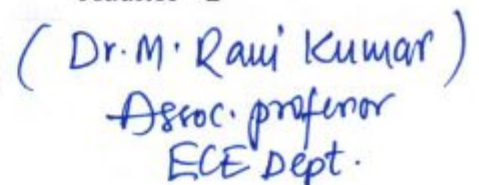 (Dr. M. Ravi Kumar)
Assoc. professor
ECE Dept.